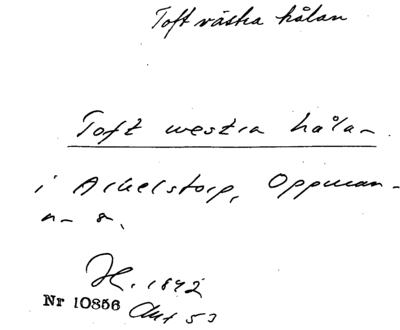 Toft västra hålan
Toft westra hålan
i Arkelstorp, Oppman-
na s.
H. 1842
Nr 10856 Akt 53